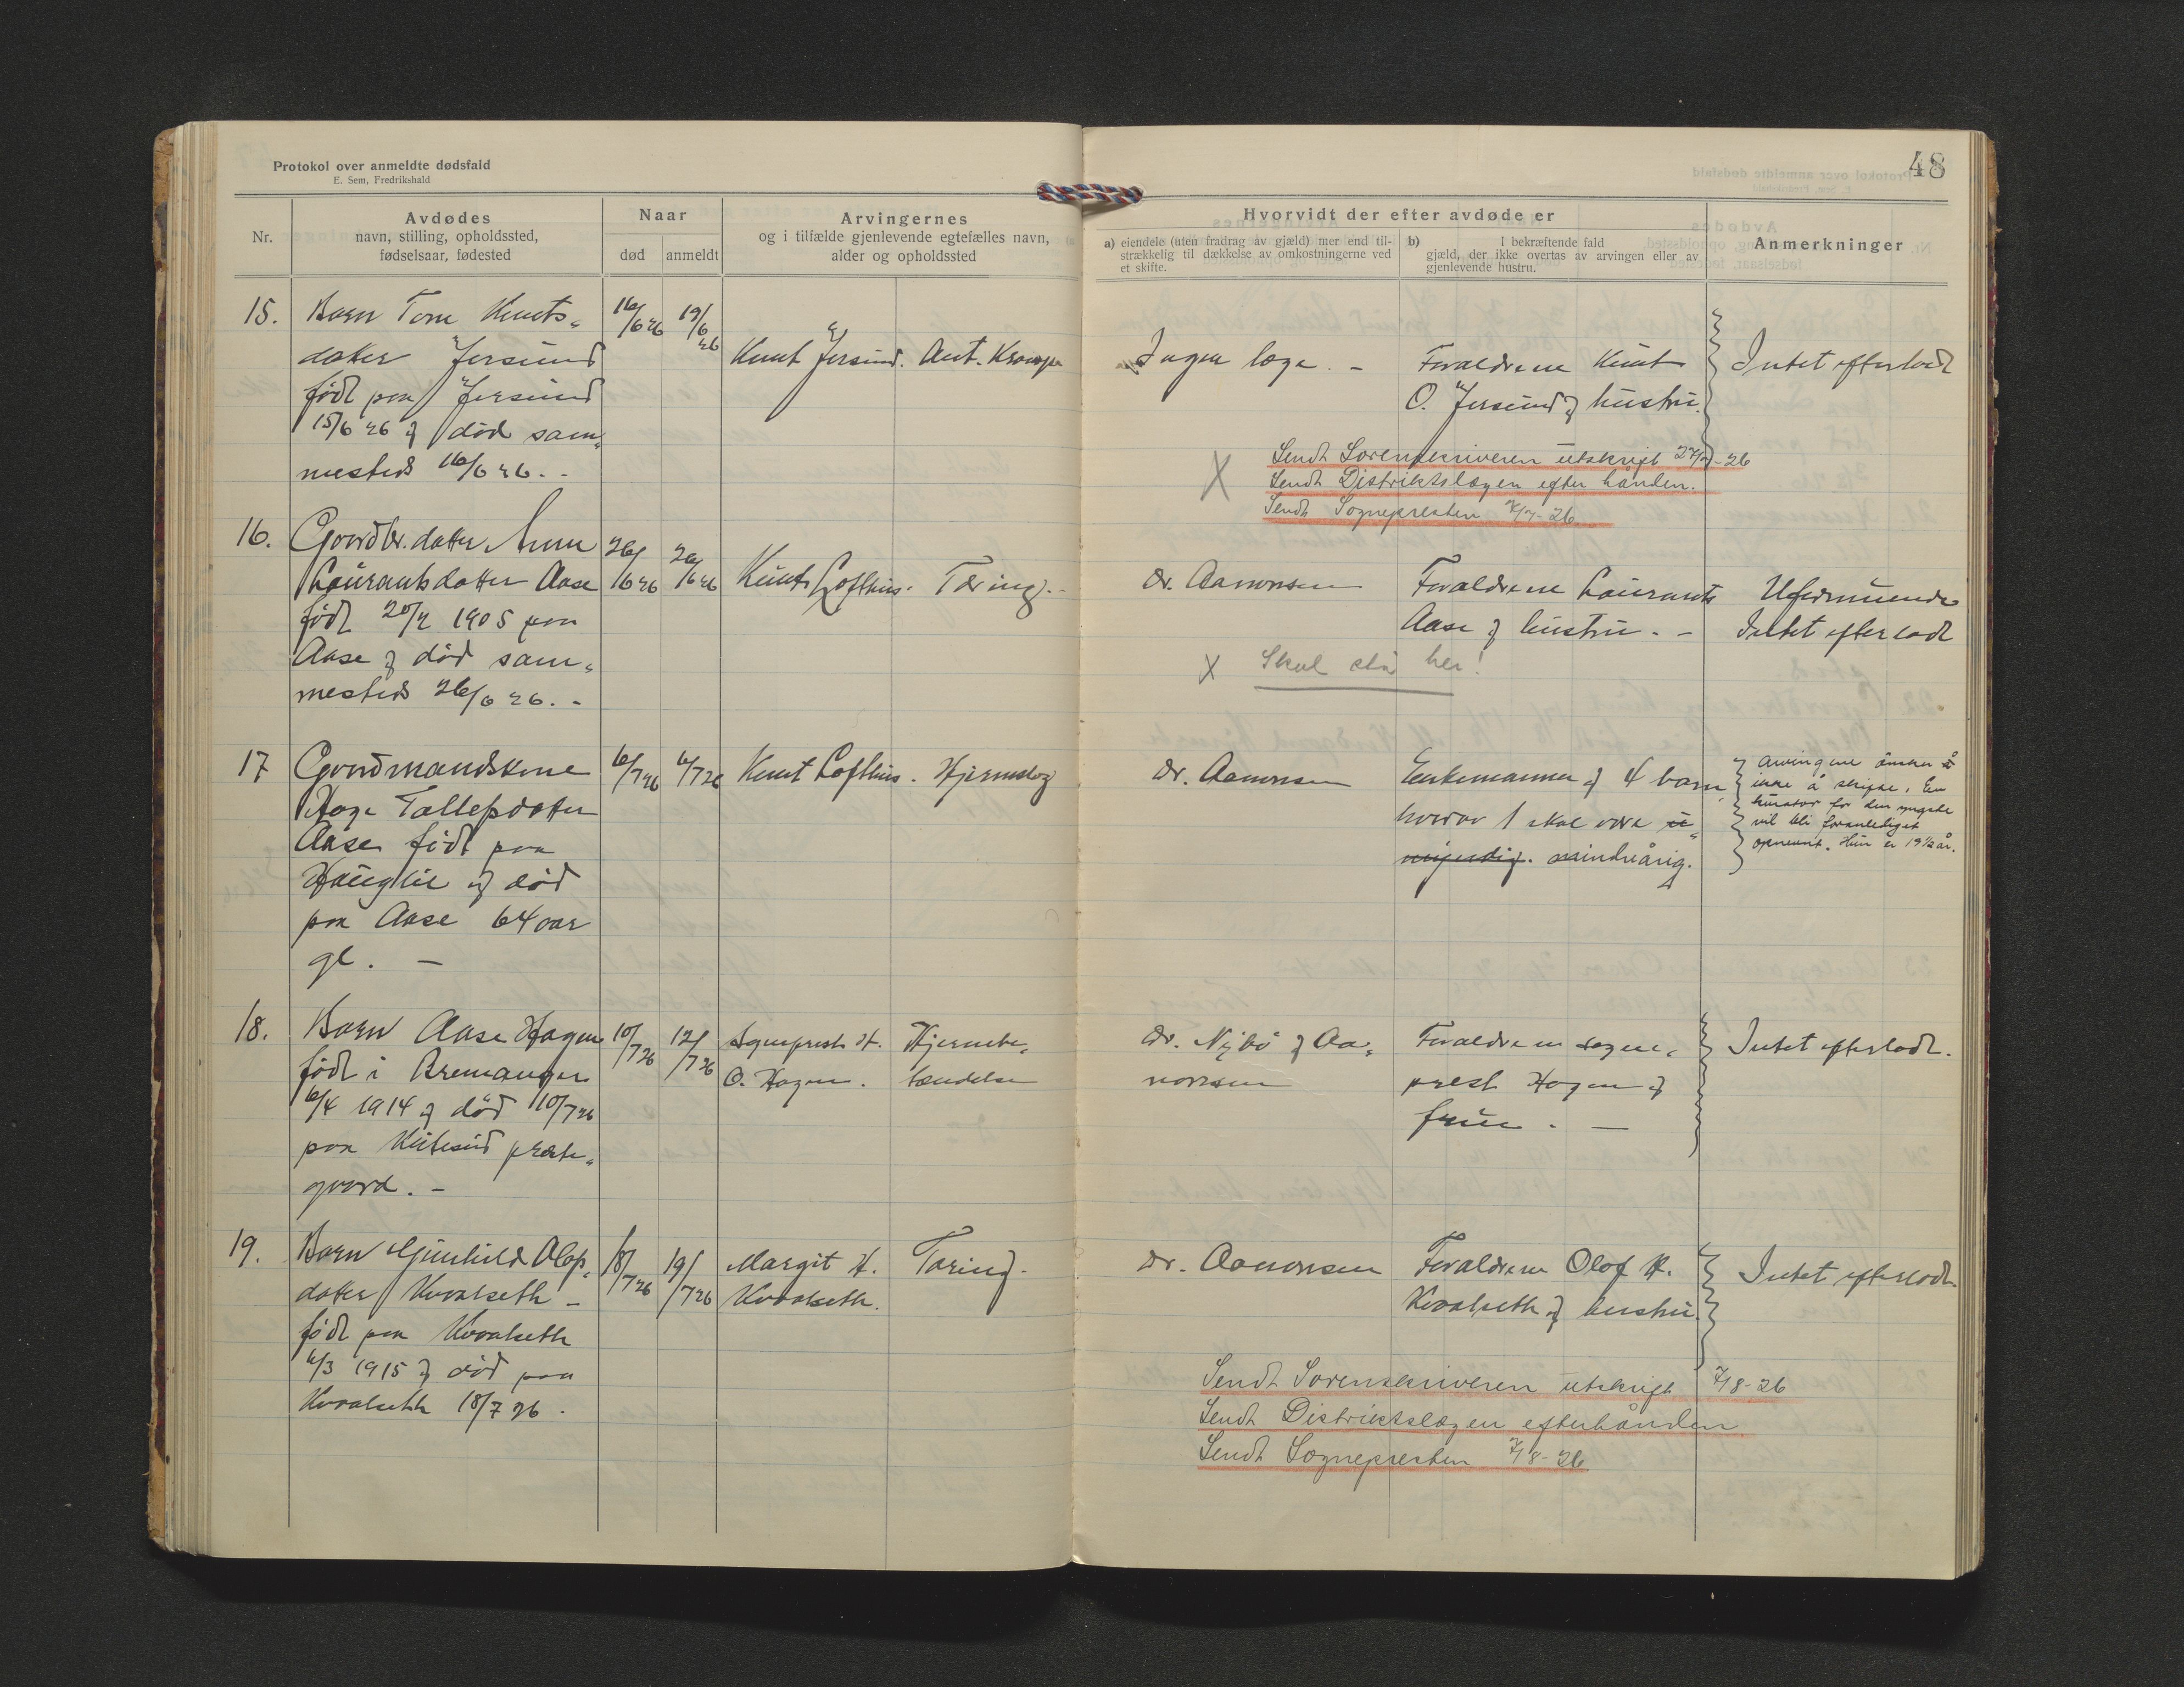 Protokol over anmeldte dødsfald
E. Sem, Fredrikshald
48
Nr.
Avdødes
navn, stilling, opholdssted,
fødselsaar, fødested
Naar
død
anmeldt
Arvingernes
og i tilfælde gjenlevende egtefælles navn,
alder og opholdssted
Hvorvidt der efter avdøde er
a) eiendele (uten fradrag av gjæld) mer end til-
strækkelig til dækkelse av omkostningerne ved
et skifte.
b) I bekræftende fald
gjæld, der ikke overtas av arvingen eller av
gjenlevende hustru.
Anmerkninger
15.
Barn Tom Knuts-
datter Jersund
født paa Jersund
15/6 26 og død sam-
mesteds 16/6 26. -
16/6 26
19/6 26
Knut Jersund.
Ant. Krampe
Ingen læge. -
Foraldrene Knut
O. Jersund og hustru.
Intet efterladt
X
Sendt Sorenskriveren utskrift 27/7-26
Sendt Distriktslægen efter hånden.
Sendt Sognepresten 2/7-26
16.
Gaardbr. datter Anna
Lauransdatter Aase
født 20/2 1905 paa
Aase og død sam-
mesteds 26/6 26. -
26/6 26
26/6 26
Knut Lofthus.
Tæring. -
Dr. Aamonsen
Foraldrene Laurants
Aase og hustru. -
Uformuende
Intet efterladt
X Skal stå her!
17
Gaardmandskone
Aase født paa
Hauglie og død
paa Aase 64 aar
gl. -
6/7 26
6/7 26
Knut Lofthus.
Hjerneslag
Dr. Aamonsen
Enkemannen og 4 barn
hvorav 1 skal være u-
myndig. mindreårig.
Arvingene ønsker å
ikke å skifte. En
kurator for den yngste
vil bli foranlediget
opnevnt. Hun er 19 1/2 år.
18.
Barn Aase Hagen
født i Bremanger
6/4 1914 og død 10/7 26
paa preste-
gaard. -
10/7 26
12/7 26
Sogneprest H.
O. Hagen.
Hjernebe-
tændelse
Dr. Nybö og Aa-
monsen
Foraldrene sogne-
prest Hagen og
frue. -
Intet efterladt.
19.
Barn Gunhild Olafs-
datter Kvalseth -
født paa Kvalseth
6/3 1915 og død paa
Kvalseth 18/7 26.
18/7 26
19/7 26
Margit H.
Kvalseth.
Tæring.
Dr. Aamonsen
Foraldrene Olaf H.
Kvalseth og hustru.
Intet efterladt.
Sendt Sorenskriveren utskrift 7/8-26
Sendt Distriktslægen efterhånden
Sendt Sognepresten 7/8-26